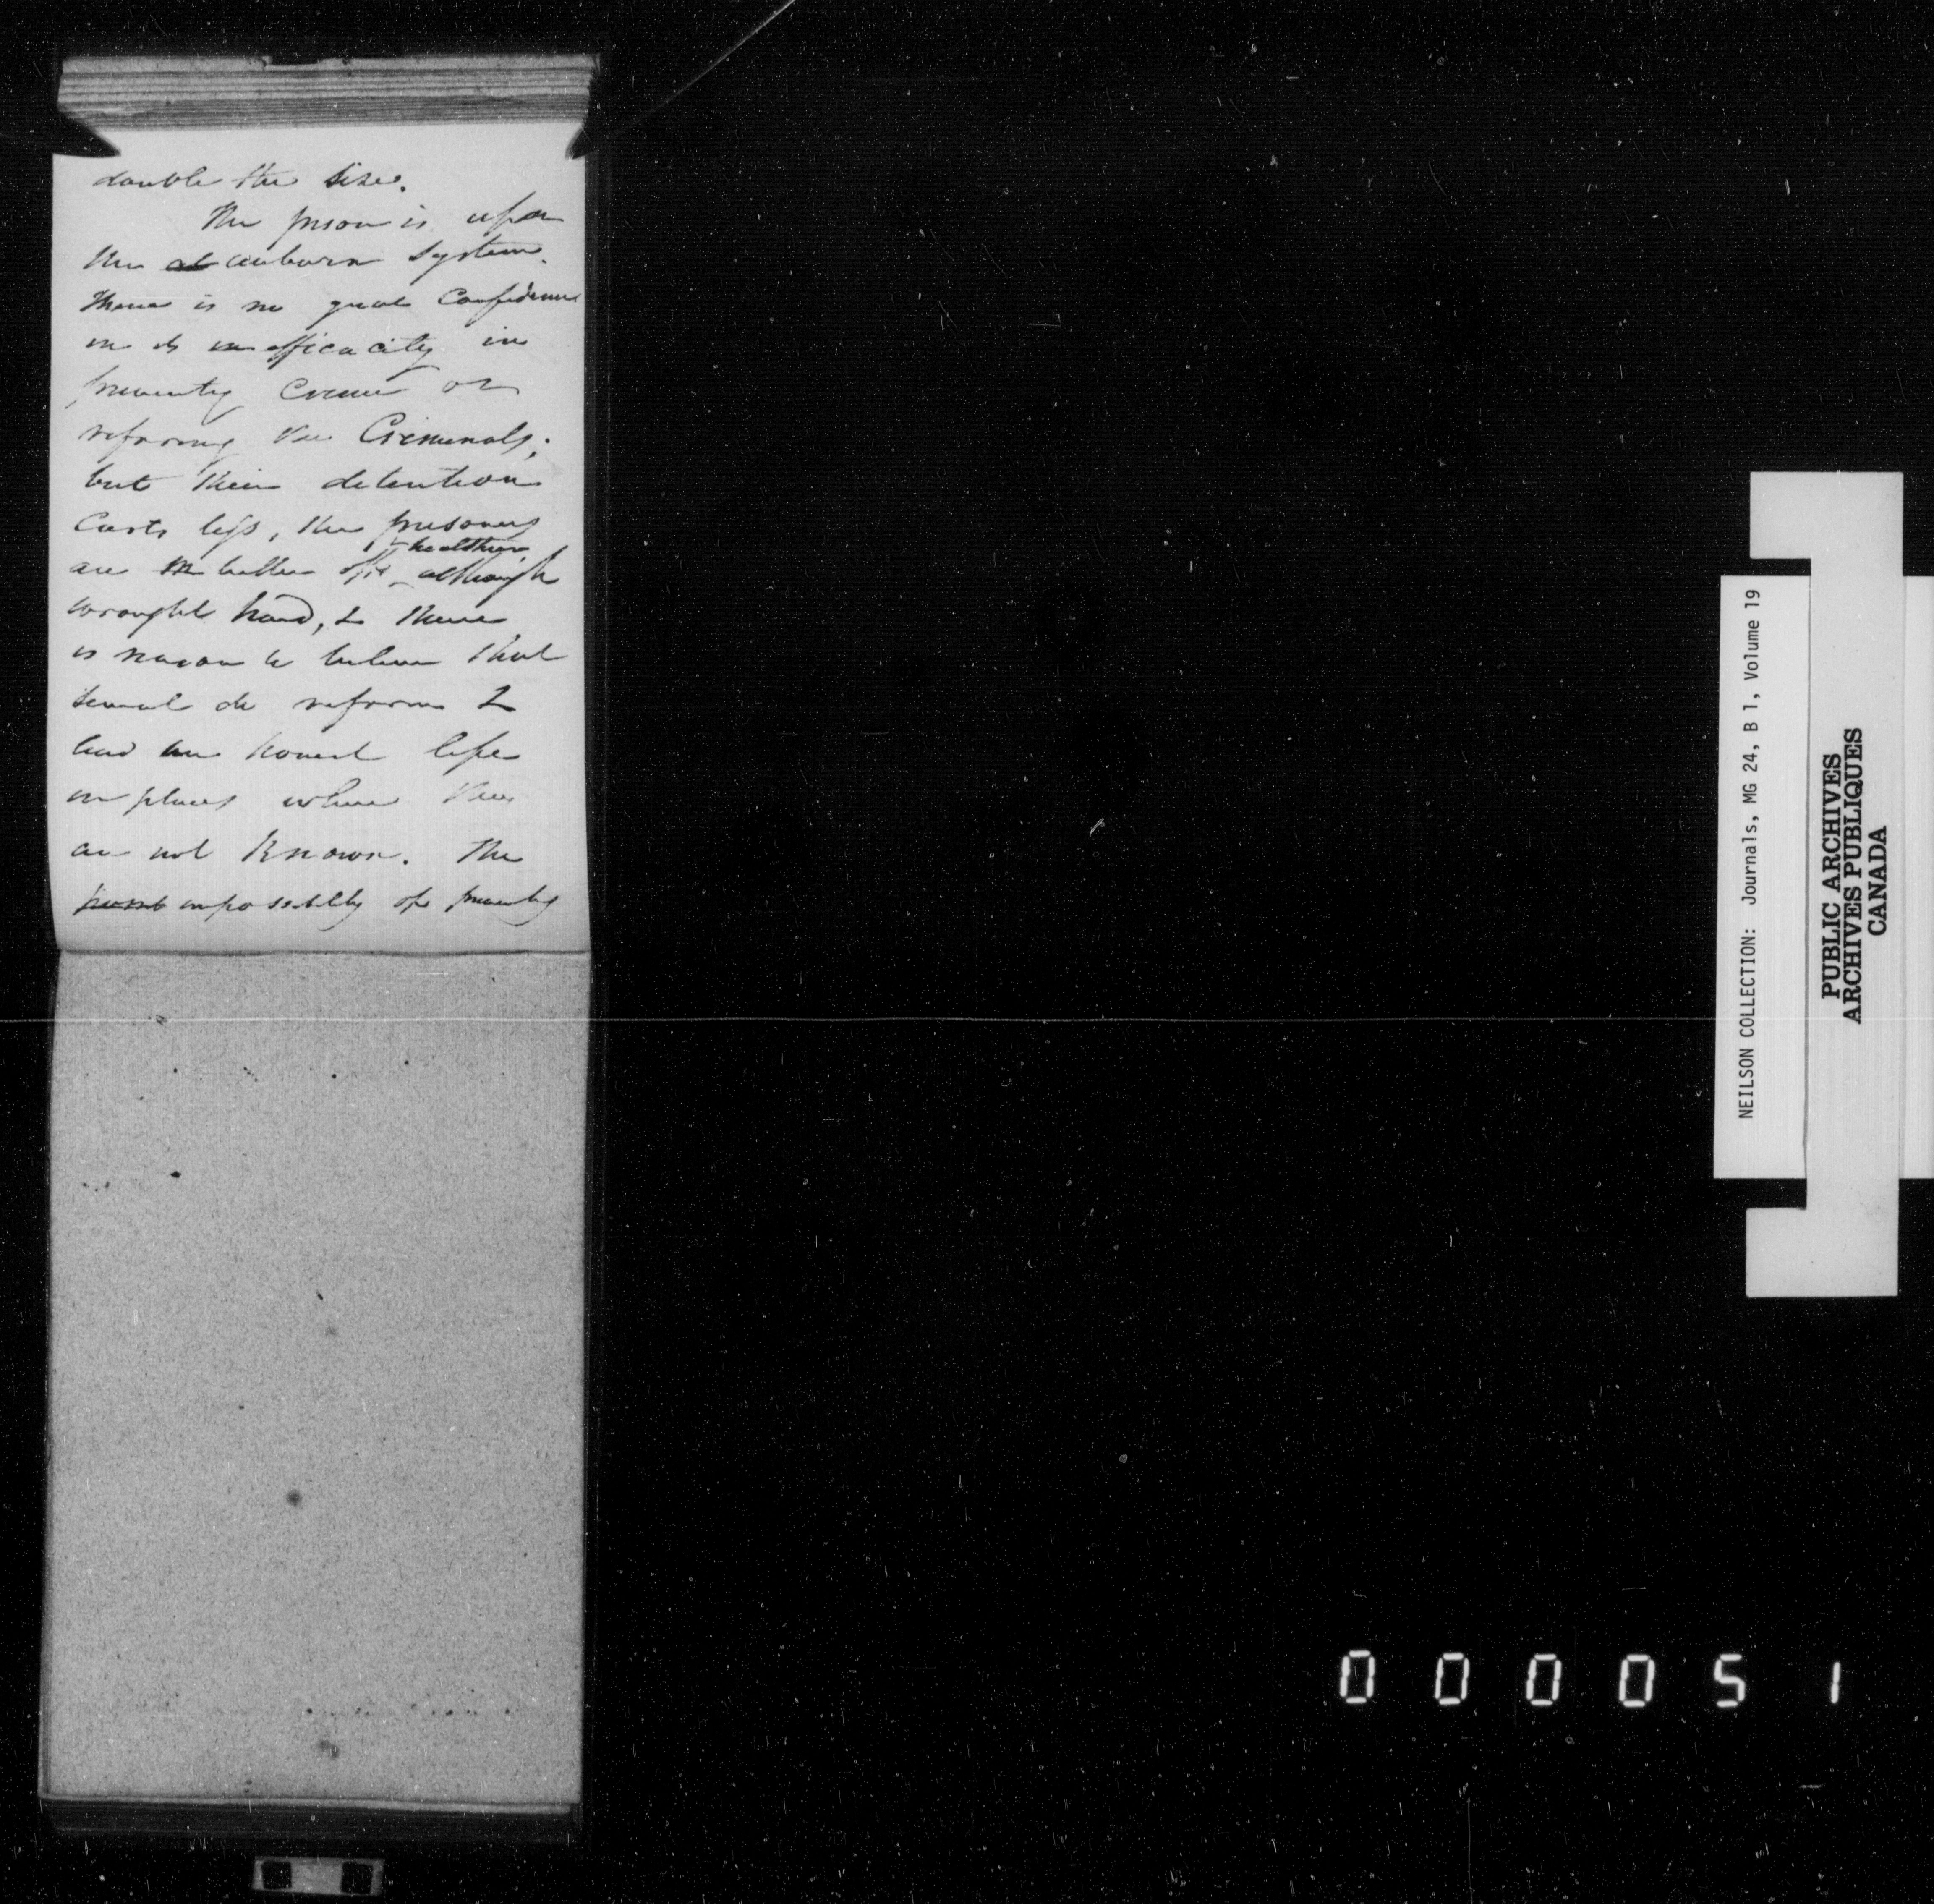 double the size.
The prison is upon
the auburn system.
There is no great Confidence
in its efficacity in
preventing Crime or
reforming the Criminals;
but their detention
Costs less, the prisoners
& healthier
are better off, although
wrought hard, & there
is reason to believe that
several do reform &
lead an honest life
in places where they
are not Known. The
impossibility of preventing
NEILSON COLLECTION: Journals, MG 24, B 1, Volume 19
PUBLIC ARCHIVES
ARCHIVES PUBLIQUES
CANADA
000051